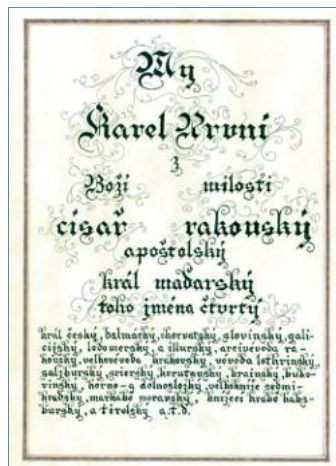 My
Karel První
z
Boží milosti
císař rakouský
apoštolský
král maďarský
toho jména čtvrtý
král český, dalmácký, chorvatský, slovinský, gali-
cijský, ledomerský, a illurský, arcivévoda ra-
kouský, velkovévoda krakovský, vévoda lothrinský
salzburský, korutanský, krainský, buko-
vinský, horno-
hradský, markabě moravský, knížecí hrabě habs-
burský, a tirolský a.t.d.